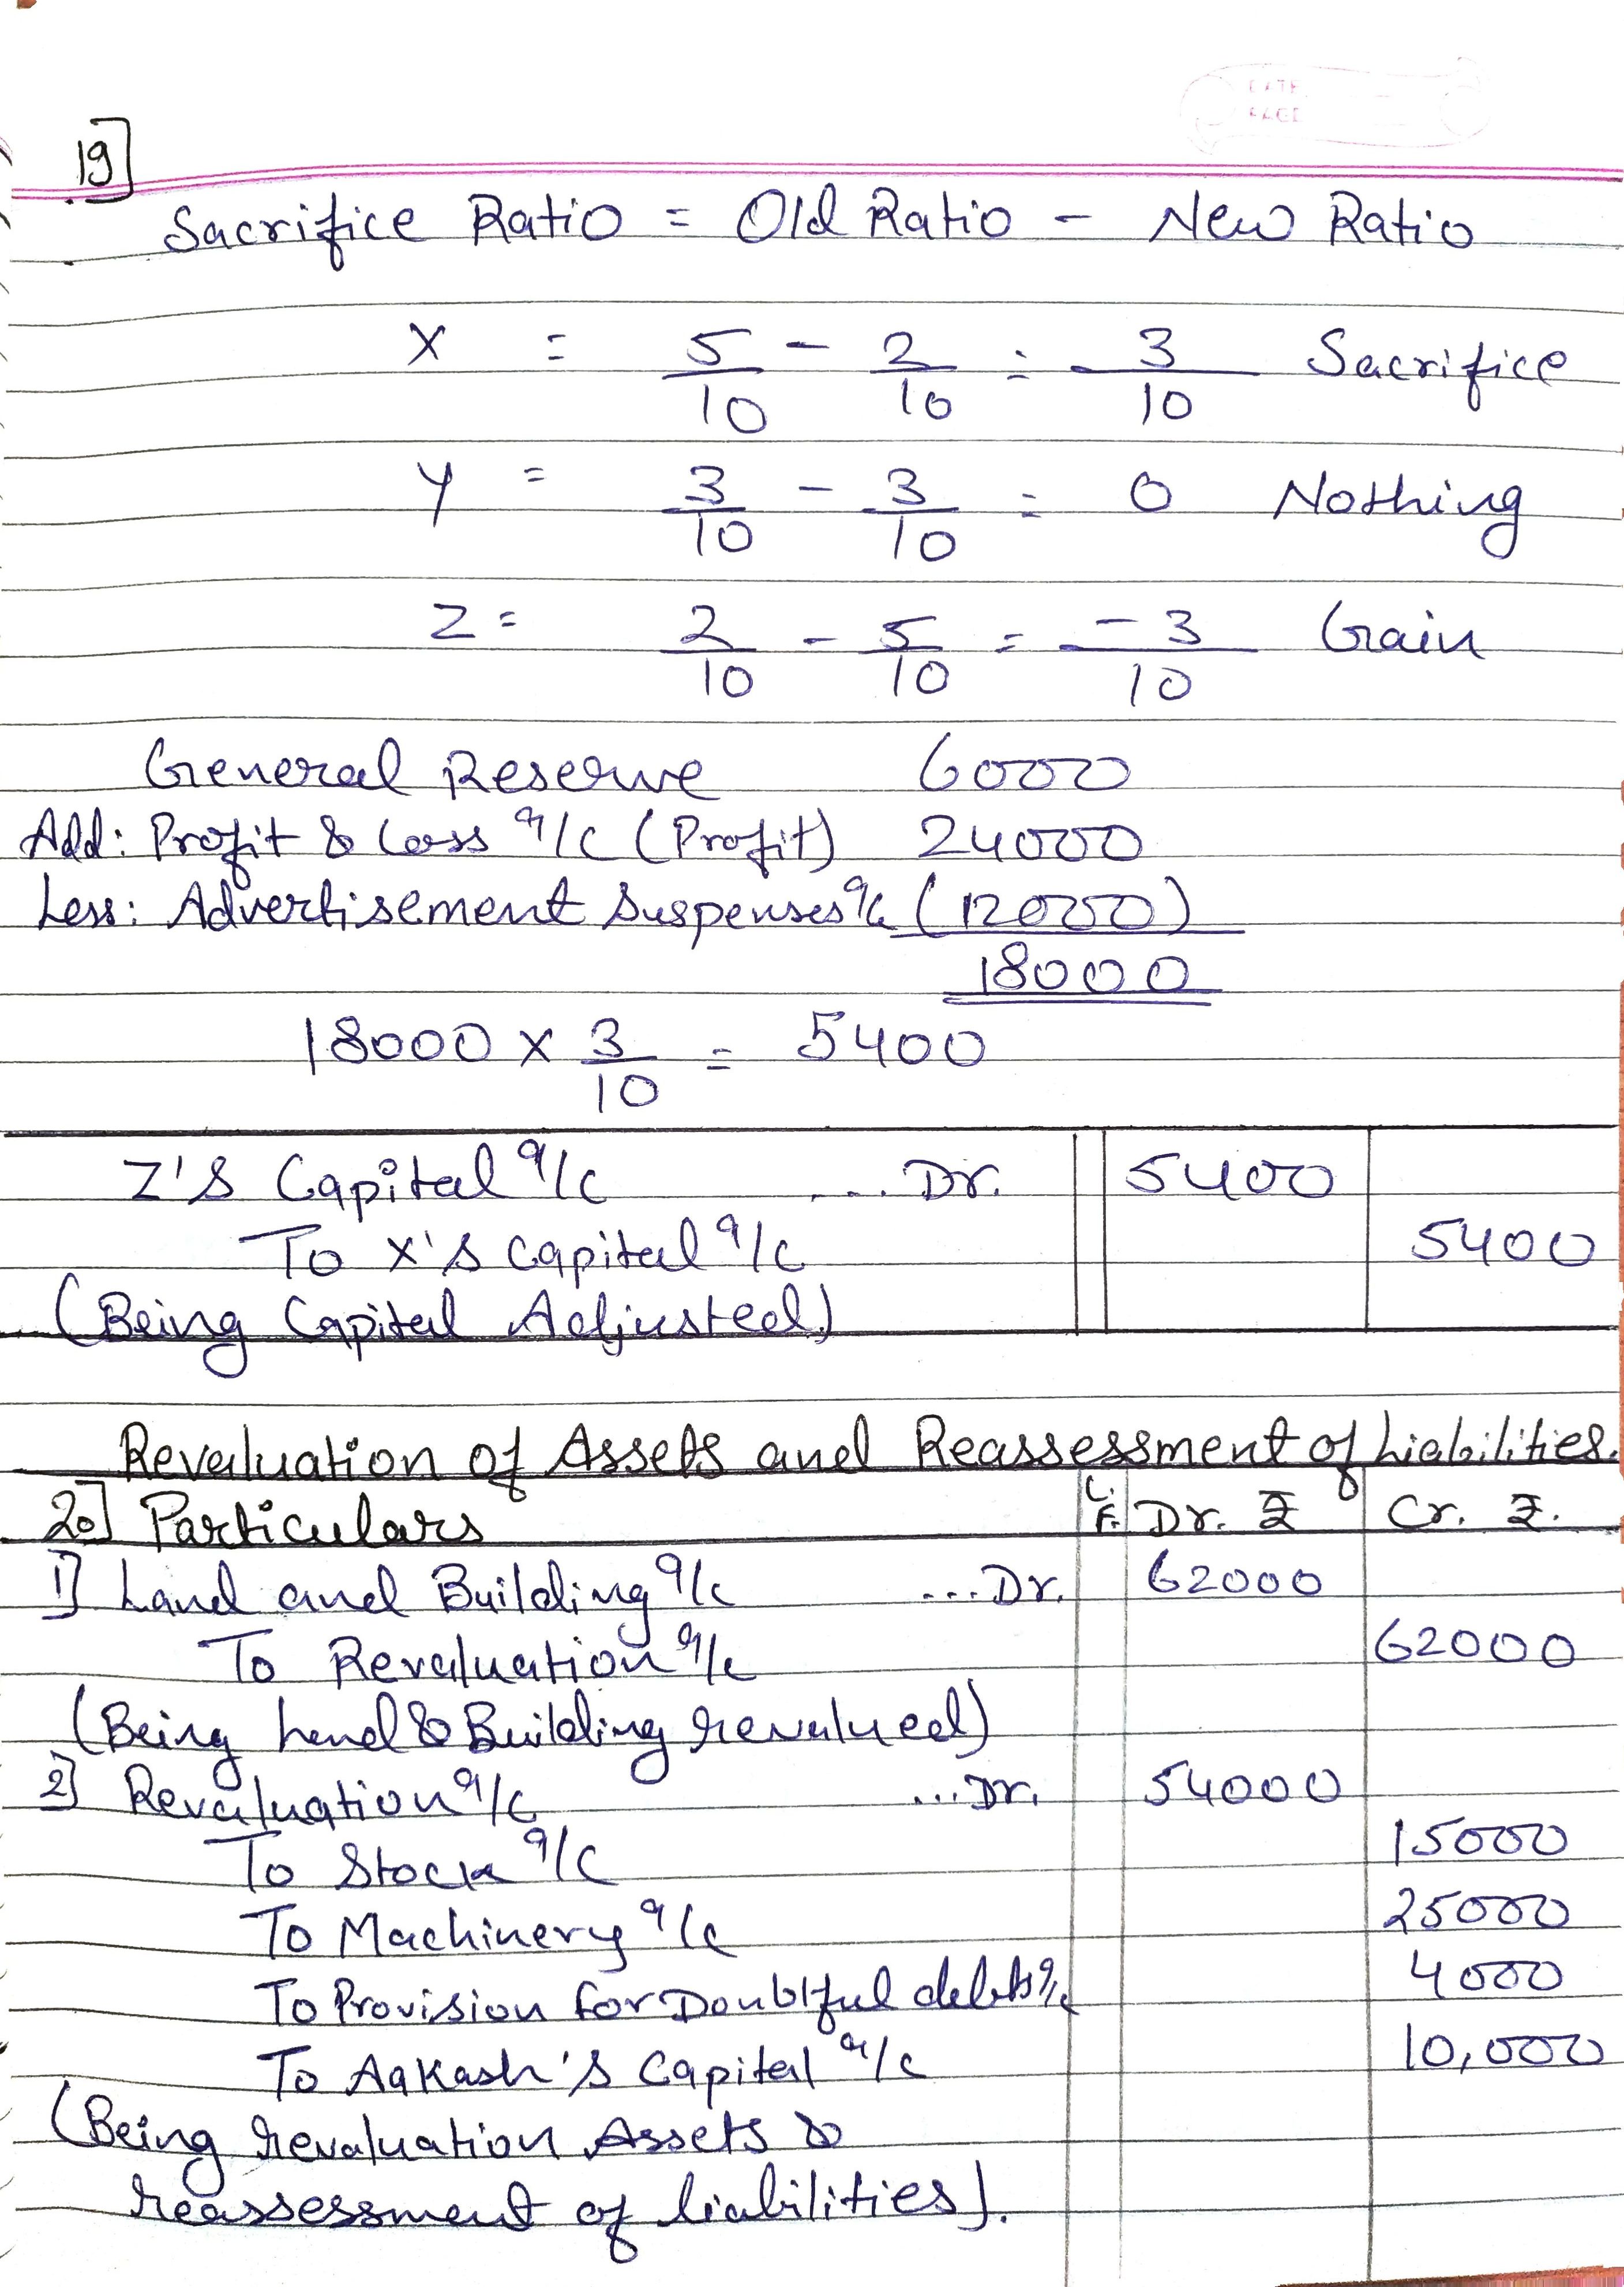 DATE
PAGE
19]
Sacrifice Ratio = Old Ratio - New Ratio
X = 5/10 - 2/10 = 3/10 Sacrifice
Y = 3/10 - 3/10 = 0 Nothing
Z = 2/10 - 5/10 = -3/10 Gain
General Reserve 6000
Add: Profit & Loss a/c (Profit) 24000
Less: Advertisement Suspenses a/c (12000)
18000
18000 x 3/10 = 5400
Z's Capital a/c ... Dr. 5400
To X's Capital a/c 5400
(Being Capital Adjusted)
Revaluation of Assets and Reassessment of Liabilities.
20] Particulars L.F. Dr. ₹ Cr. ₹.
1] Land and Building a/c ...Dr. 62000
To Revaluation a/c 62000
(Being Land & Building revalued)
2] Revaluation a/c ...Dr. 54000
To Stock a/c 15000
To Machinery a/c 25000
To Provision for Doubtful debts a/c 4000
To Aakash's Capital a/c 10,000
(Being revaluation Assets &
reassessment of liabilities).